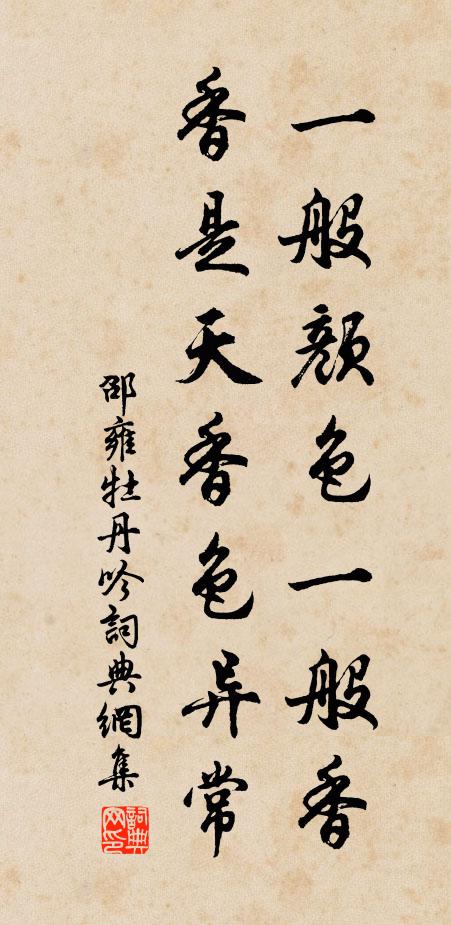 一般顏色一般香
香是天香色异常
邵雍牡丹吟詞典網集
詞典
网印